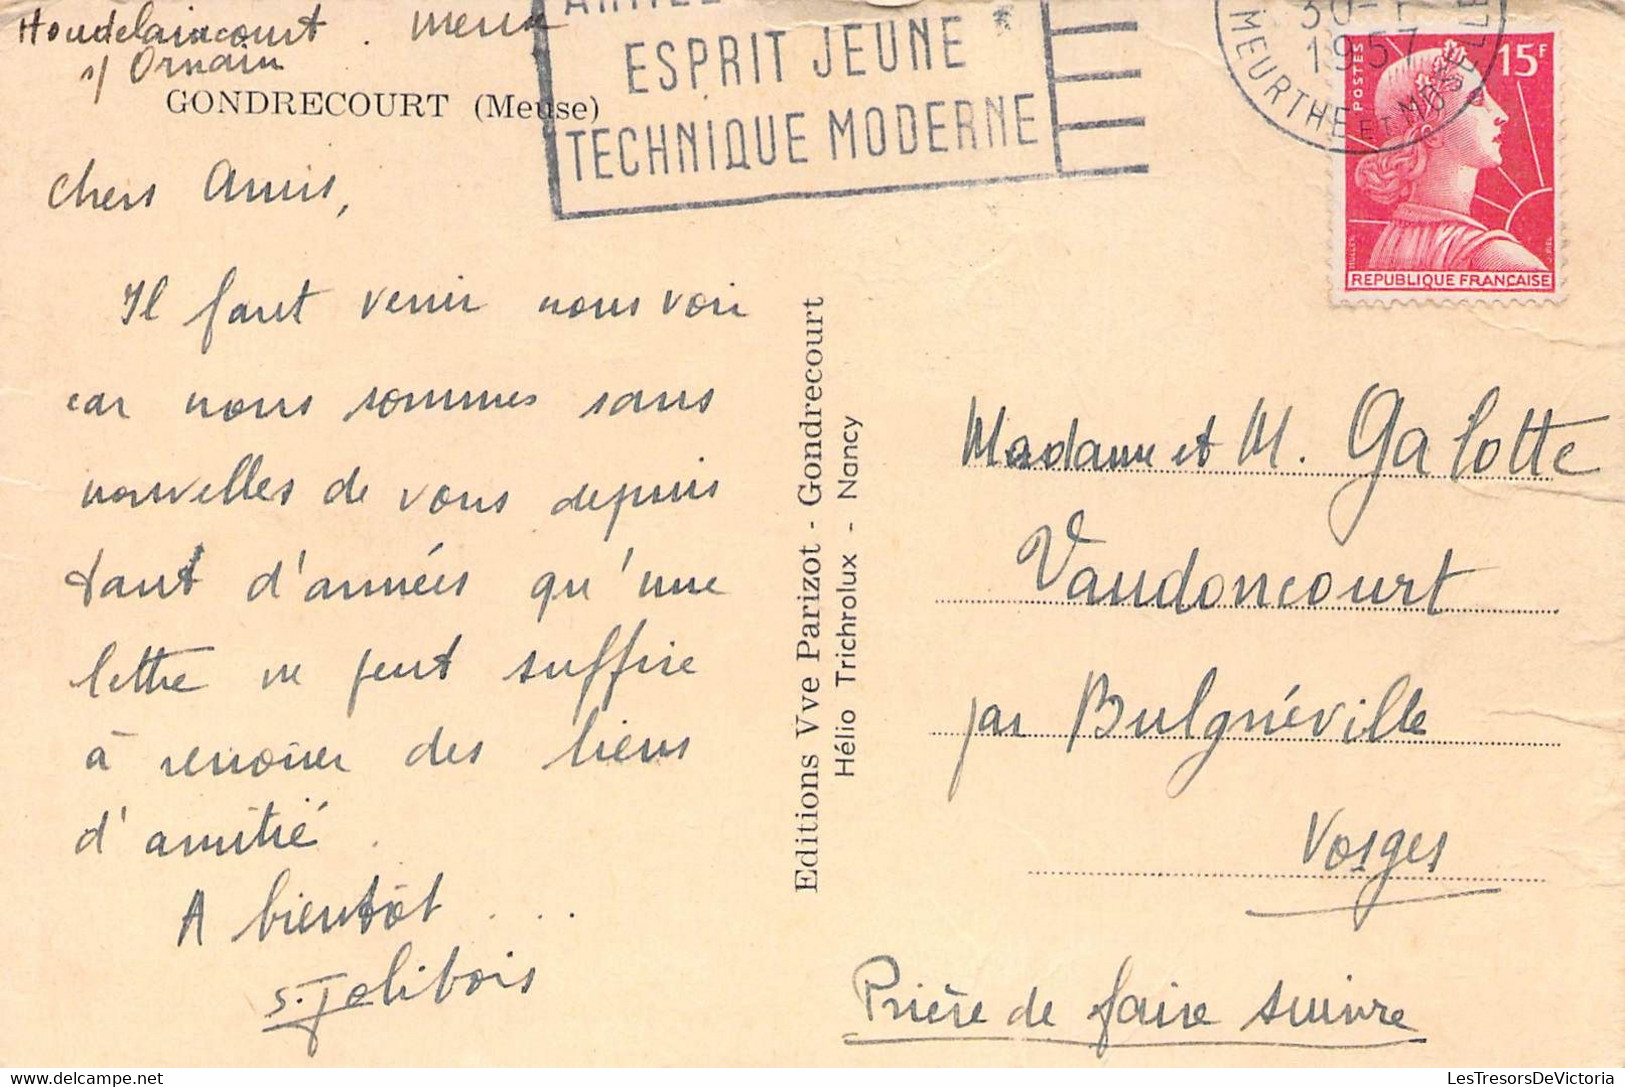 Houdelaincourt. Meuse
s/ Ornain
GONDRECOURT (Meuse)
ESPRIT JEUNE
TECHNIQUE MODERNE
30-1
1957
MEURTHE ET MOSELLE
POSTES
15F
MULLER
REPUBLIQUE FRANÇAISE
Chers Amis,
Il faut venir nous voir
car nous sommes sans
nouvelles de vous depuis
tant d'années qu'une
lettre ne peut suffire
à renouer des liens
d'amitié.
A bientôt ...
S. Jolibois
Editions Vve Parizot - Gondrecourt
Hélio Trichrolux - Nancy
Madame et M. Galotte
Vaudoncourt
par Bulgnéville
Vosges
Prière de faire suivre
LesTresorsDeVictoria